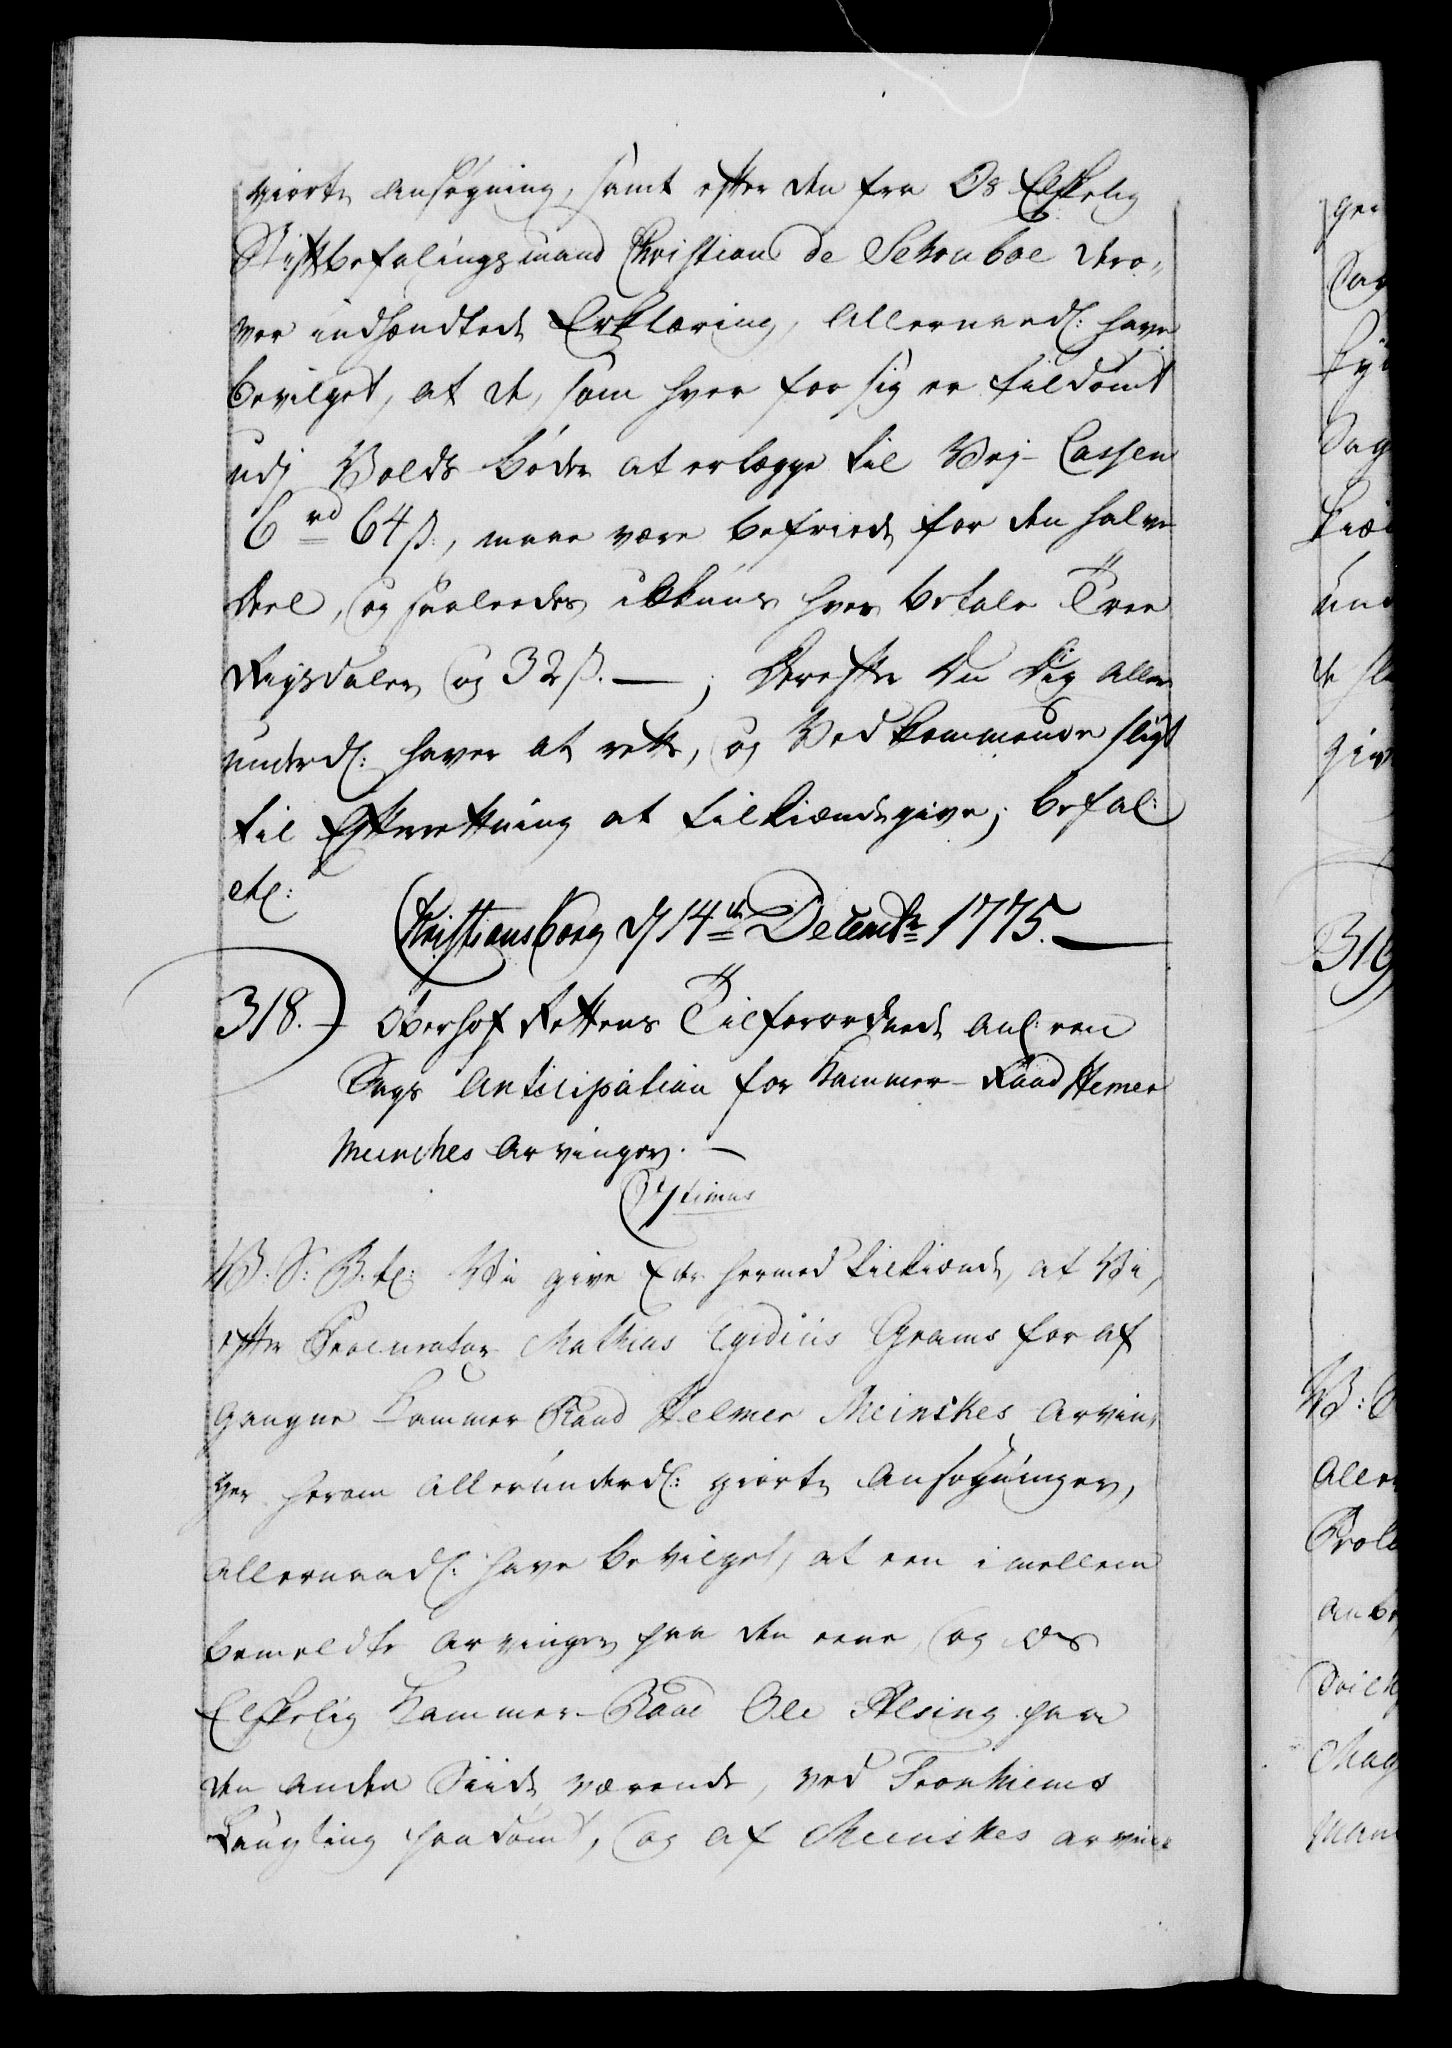 giorte Ansøgning, samt efter den fra Os Elskelig
Stiftbefalingsmand Christian de Schouboe dero,,
ver indsændtede Erklæring, Allernaadl: have
bevilget, at de, som hver for sig er tildømt
udj Volds Bøder at erlægge til Vej-Cassen
6 rd 64 ß., maae være befriede for den halve
Deel, og saaledes ikkuns hver betale Tree
Rigsdaler og 32 ß. — ; Derefter Du Dig Aller
underd: haver at rette, og Vedkommende sligt
til Efterretning at tilkiendegive; befal:
etc:
Christiansborg d 14de Decembr 1775. —
318.) Overhof Rettens Tilforordnede anl: een
Sags Anticipation for Kammer-Raad Hemer
Munches Arvinger. —
V: S: G. tl: Vi give Eder hermed tilkiende, at Vi,
efter Procurator Mathias Egidius Grams for af
gangne Kammer Raad Helmer Meinckes Arvin,
ger herom Allerunderd: giorte Ansøgninger,
Allernaadl: have bevilget, at een imellem
bemeldte Arvinger paa den eene, og Os
Elskelig Kammer-Raad Ole Alsing paa
den anden Siide værende, ved Tronhiems
Laugting paadømt, og af Meinckes Arvin